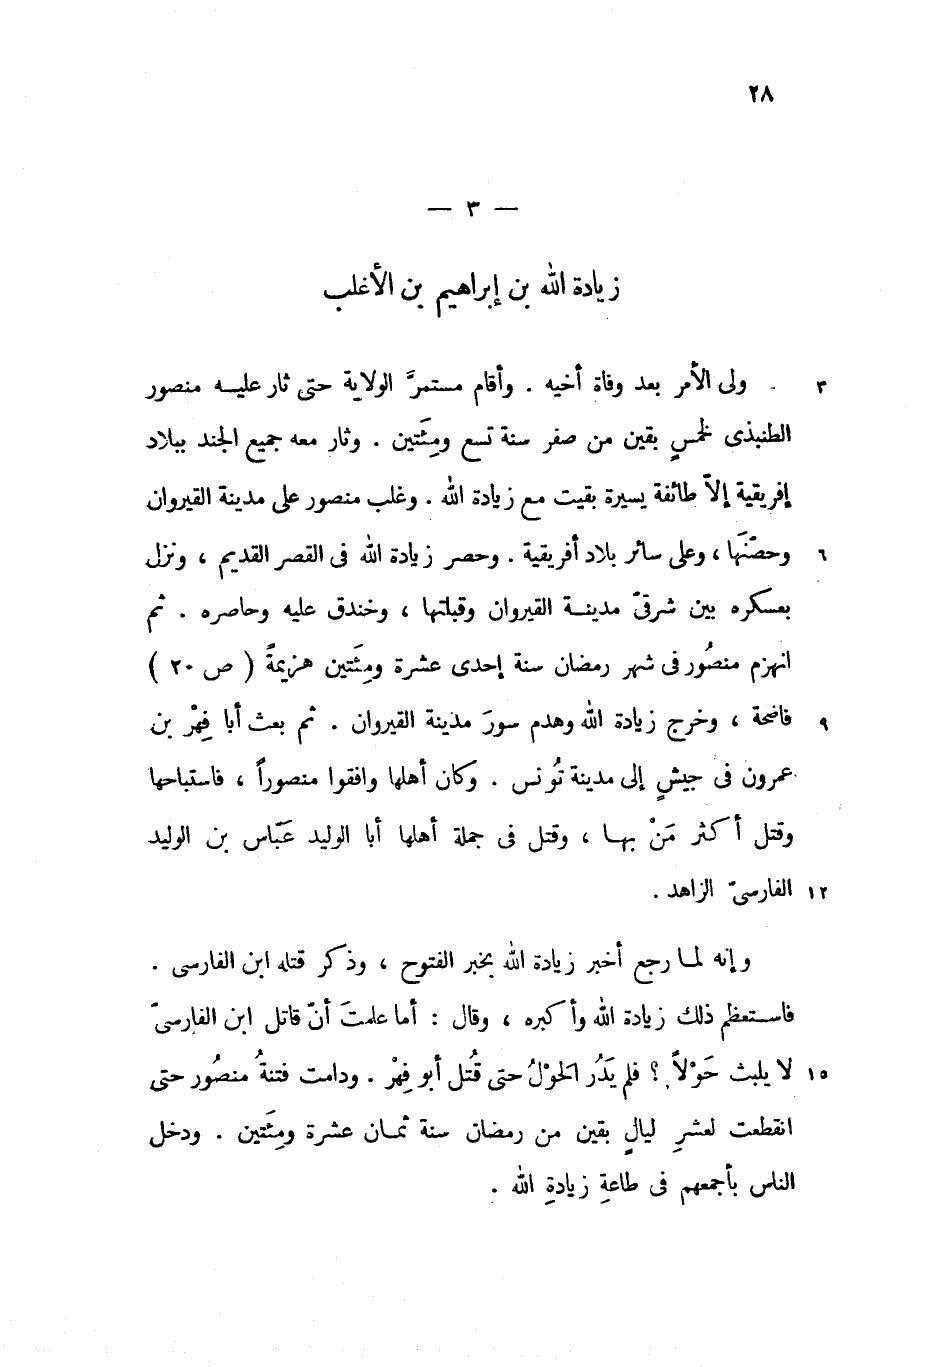 ٢٨
— ٣ —
زيادة الله بن إبراهيم بن الأغلب
٣ ولى الأمر بعد وفاة أخيه . وأقام مستمرَّ الولاية حتى ثار عليه منصور
الطنبذى لخمسٍ بقين من صفر سنة تسع ومِئَتين . وثار معه جميع الجند ببلاد
إفريقية إلاّ طائفة يسيرة بقيت مع زيادة الله . وغلب منصور على مدينة القيروان
٦ وحصّنَها ، وعلى سائر بلاد أفريقية . وحصر زيادة الله فى القصر القديم ، ونزل
بعسكره بين شرقىّ مدينة القيروان وقبلتها ، وخندق عليه وحاصره . ثم
انهزم منصُور فى شهر رمضان سنة إحدى عشرة ومِئَتين هزيمةً ( ص ٢٠ )
٩ فاضحة ، وخرج زيادة الله وهدم سورَ مدينة القيروان . ثم بعث أبا فِهْر بن
عمرون فى جيشٍ إلى مدينة تُونس . وكان أهلها وافقوا منصوراً ، فاستباحها
وقتل أكثر مَنْ بها ، وقتل فى جملة أهلها أبا الوليد عَبّاس بن الوليد
١٢ الفارسىّ الزاهد .
وإنه لما رجع أخبر زيادة الله بخبر الفتوح ، وذكر قتله ابن الفارسى .
فاستعظم ذلك زيادة الله وأكبره ، وقال : أما علمتَ أنّ قاتل ابن الفارسىّ
١٥ لا يلبث حَوْلاً ؟ فلم يَدُر الحَوْلُ حتى قُتل أبو فِهْر . ودامت فتنةُ منصُور حتى
انقطعت لعشرِ ليالٍ بقين من رمضان سنة ثمان عشرة ومِئَتين . ودخل
الناس بأجمعهم فى طاعةِ زيادةِ الله .